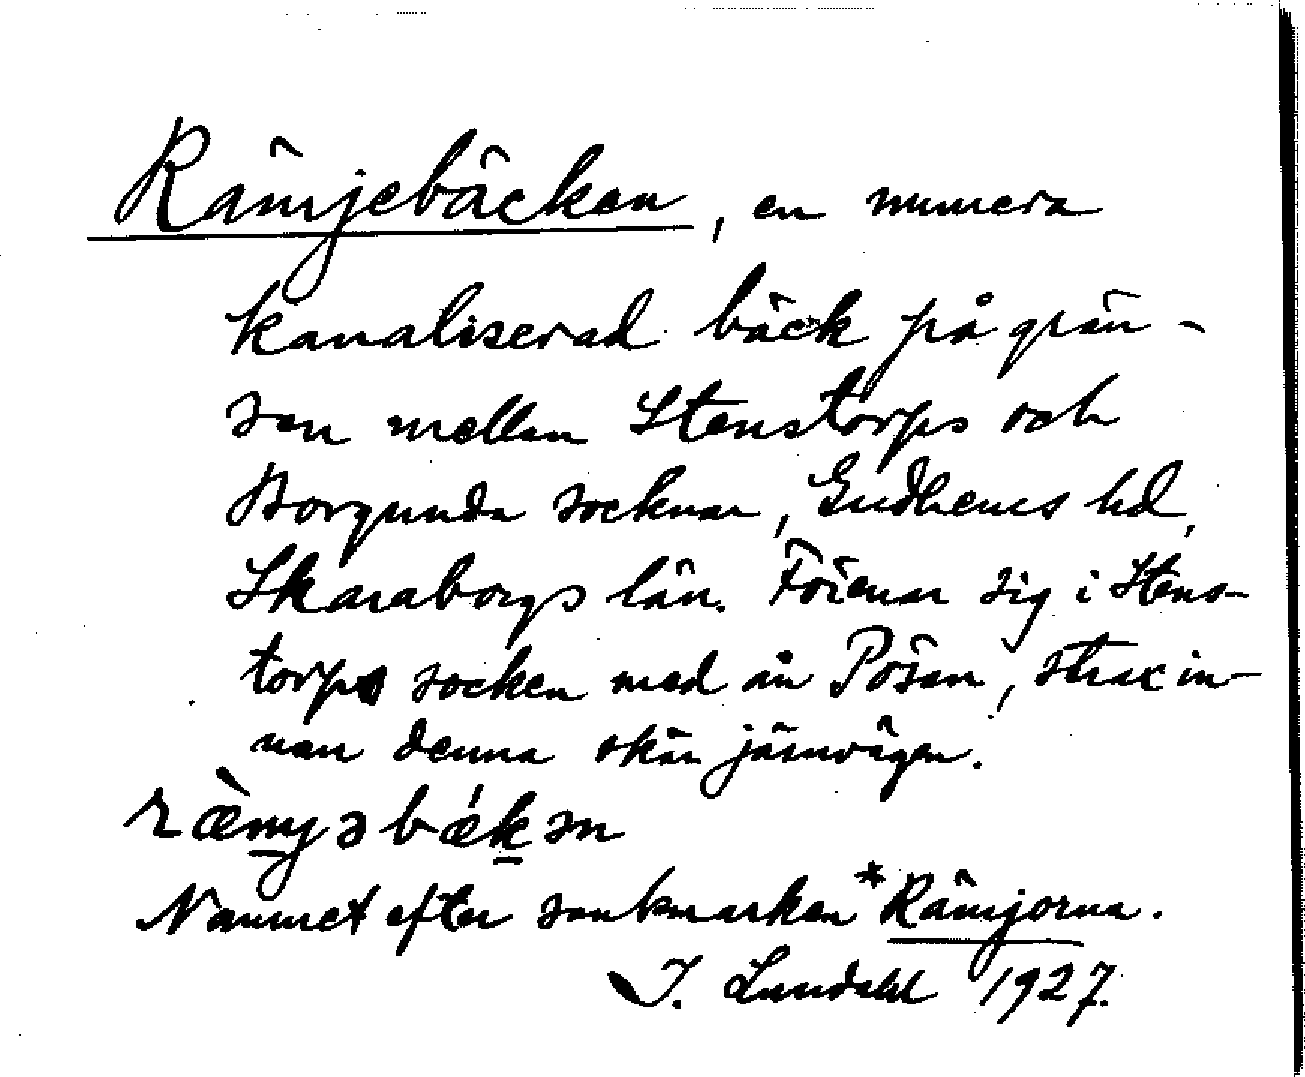 Rämjebäcken, en numera
kanaliserad bäck på grän-
sen mellan Stenstorps och
Borgunda socknar, Gudhems hd,
Skaraborgs län. Förenar sig i Stens-
torps socken med ån Pösan, strax in-
nan denna skär järnvägen.
ræ̀mjəbǽkən
Namnet efter sankmarken *Rämjorna.
I. Lundahl 1927.